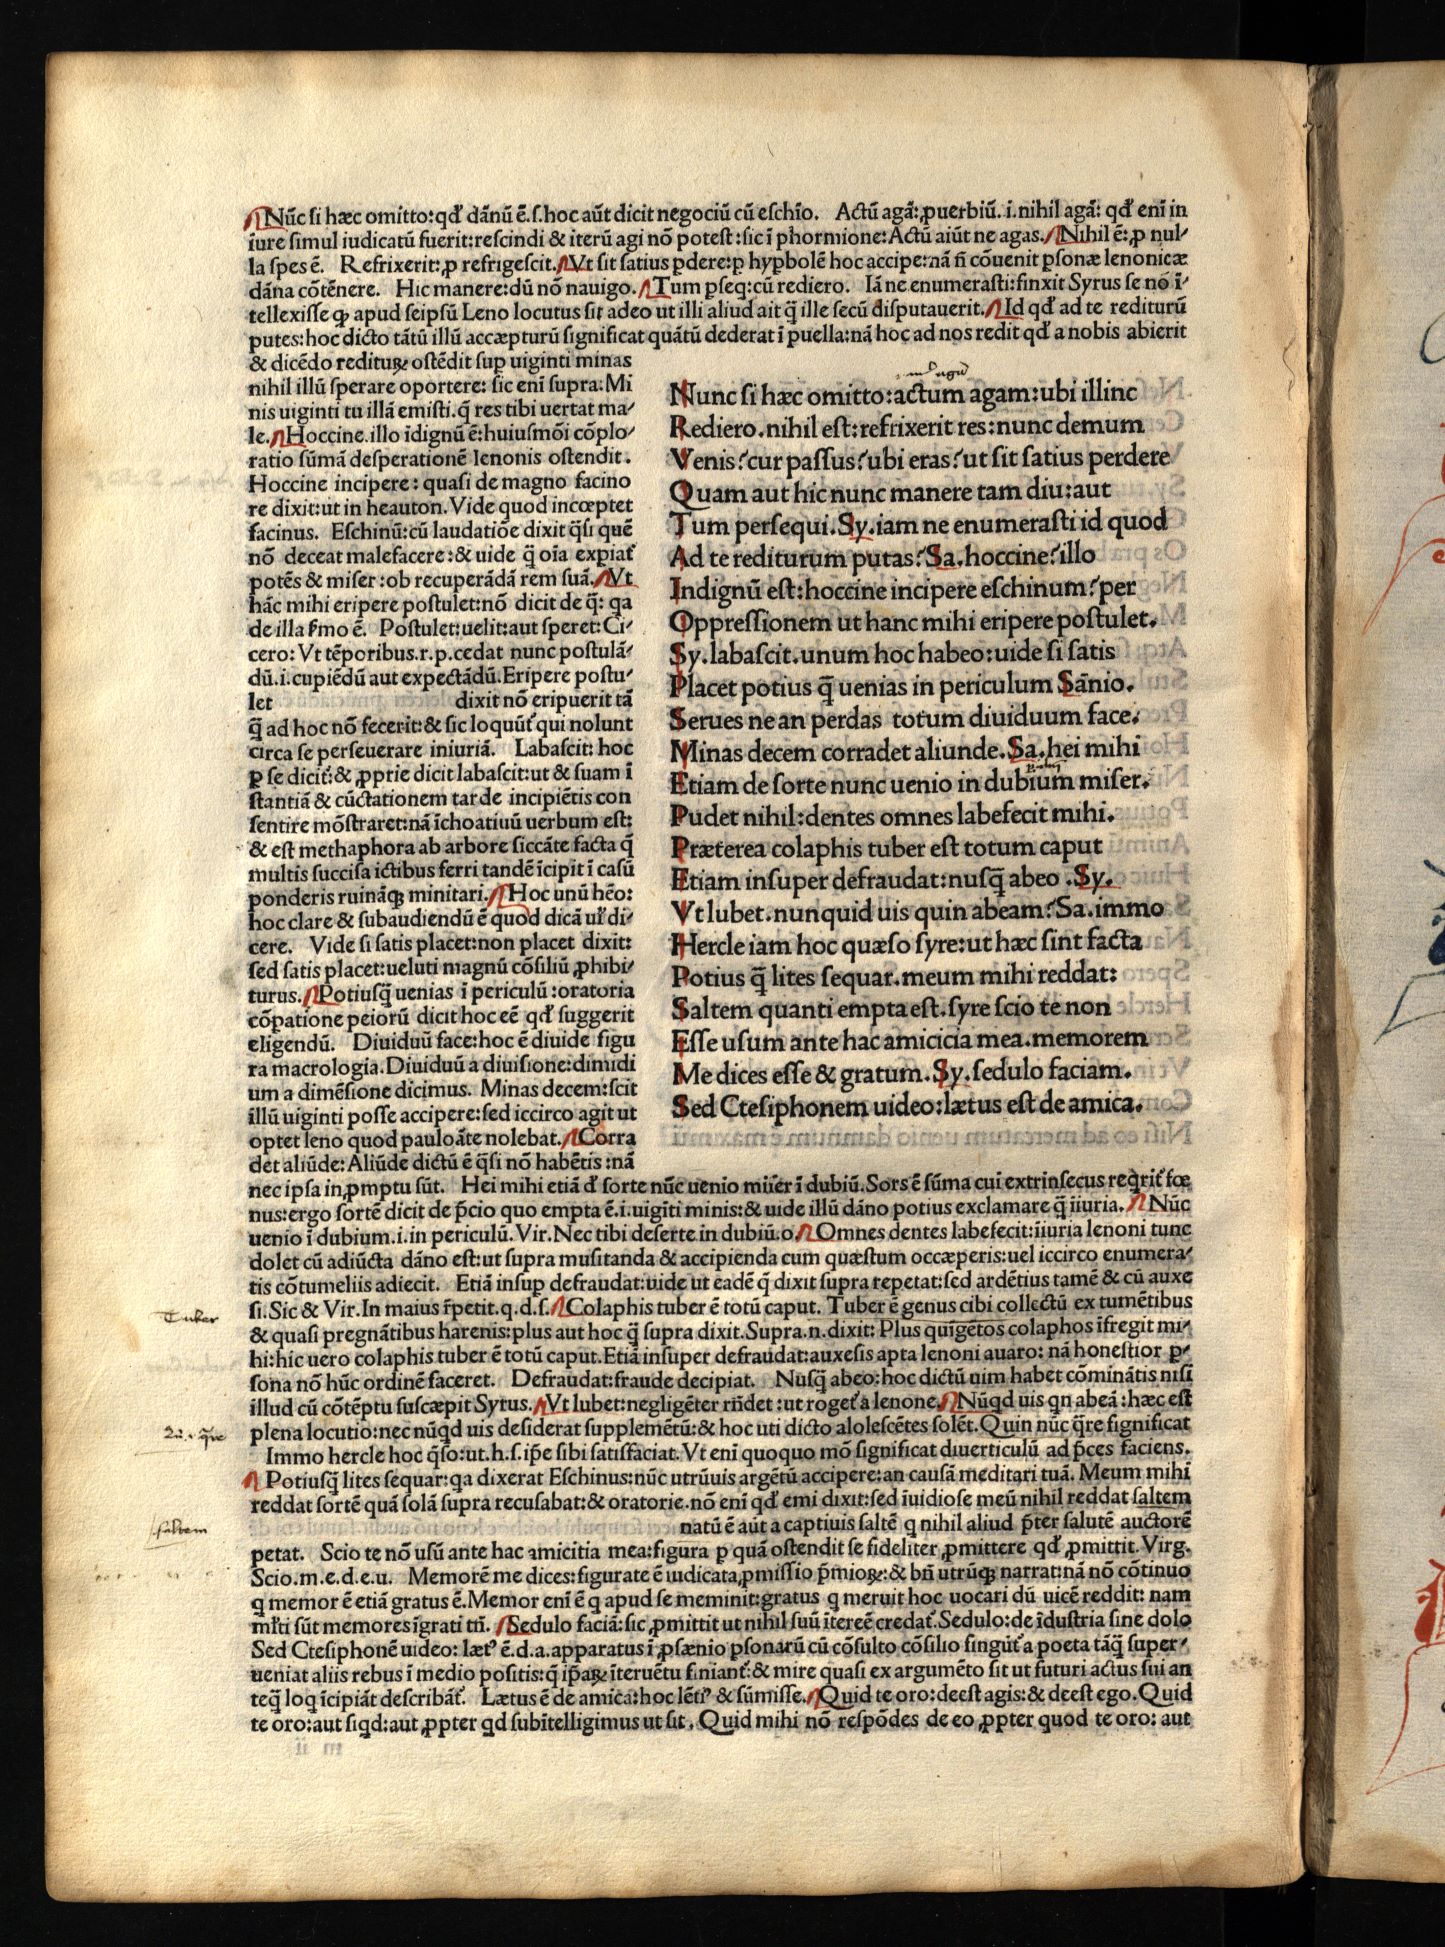 Nūc si hæc omitto:qđ dānū ē.s.hoc aūt dicit negociū cū eschio. Actū agā:ꝓuerbiū.i.nihil agā: qđ eni in
iure simul iudicatū fuerit:rescindi & iterū agi nō potest:sic ī phormione:Actū aiūt ne agas. Nihil ē:ꝓ nul-
la spes ē. Refrixerit:ꝓ refrigescit. Vt sit satius ꝑdere:ꝑ hyꝑbolē hoc accipe:nā n̄ cōuenit ꝑsonæ lenonicæ
dāna cōtēnere. Hic manere:dū nō nauigo. Tum ꝑseq:cū rediero. Iā ne enumerasti:finxit Syrus se nō ī-
tellexisse ꝙ apud seipsū Leno locutus sit adeo ut illi aliud ait q̄ ille secū disputauerit. Id qđ ad te rediturū
putes:hoc dicto tātū illū accæpturū significat quātū dederat ī puella:nā hoc ad nos redit qđ a nobis abierit
& dicēdo redituꝝ ostēdit suꝑ uiginti minas
nihil illū sperare oportere: sic eni supra:Mi
nis uiginti tu illā emisti.q̄ res tibi uertat ma-
le. Hoccine.illo īdignū ē:huiusmōi cōplo-
ratio sūmā desperationē lenonis ostendit.
Hoccine incipere: quasi de magno facino
re dixit:ut in heauton.Vide quod incœptet
facinus. Eschinū:cū laudatiōe dixit q̄si quē
nō deceat malefacere:& uide q̄ oīa expiat̄
potēs & miser:ob recuperādā rem suā. Vt
hāc mihi eripere postulet:nō dicit de q̄: qa
de illa s̄mo ē. Postulet:uelit:aut speret:Ci-
cero:Vt tēporibus.r.p.cedat nunc postulā-
dū.i.cupiēdū aut expectādū.Eripere postu-
let dixit nō eripuerit tā
q̄ ad hoc nō fecerit:& sic loquūt̄ qui nolunt
circa se perseuerare iniuriā. Labascit: hoc
ꝑ se dicit̄:& ꝓprie dicit labascit:ut & suam ī
stantiā & cūctationem tarde incipiētis con
sentire mōstraret:nā īchoatiuū uerbum est:
& est methaphora ab arbore siccāte facta q̄
multis succisa ictibus ferri tandē īcipit ī casū
ponderis ruināqꝫ minitari. Hoc unū hēo:
hoc clare & subaudiendū ē quod dicā ul̄ di-
cere. Vide si satis placet:non placet dixit:
sed satis placet:ueluti magnū cōsiliū ꝓhibi-
turus. Potiusq̄ uenias ī periculū:oratoria
cōpatione peiorū dicit hoc eē qđ suggerit
eligendū. Diuiduū face:hoc ē diuide figu
ra macrologia.Diuiduū a diuisione:dimidi
um a dimēsione dicimus. Minas decem:scit
illū uiginti posse accipere:sed iccirco agit ut
optet leno quod pauloāte nolebat. Corra
det aliūde:Aliūde dictū ē q̄si nō habētis:nā
Nunc si hæc omitto:actum agam:ubi illinc
Rediero.nihil est:refrixerit res:nunc demum
Venis?cur passus?ubi eras?ut sit satius perdere
Quam aut hic nunc manere tam diu:aut
Tum persequi.Sy.iam ne enumerasti id quod
Ad te rediturum putas?Sa.hoccine?illo
Indignū est:hoccine incipere eschinum?per
Oppressionem ut hanc mihi eripere postulet.
Sy.labascit.unum hoc habeo:uide si satis
Placet potius q̄ uenias in periculum Sānio.
Serues ne an perdas totum diuiduum face.
Minas decem corradet aliunde.Sa.hei mihi
Etiam de sorte nunc uenio in dubium miser.
Pudet nihil:dentes omnes labefecit mihi.
Præterea colaphis tuber est totum caput
Etiam insuper defraudat:nusq̄ abeo .Sy.
Vt lubet.nunquid uis quin abeam?Sa.immo
Hercle iam hoc quæso syre:ut hæc sint facta
Potius q̄ lites sequar.meum mihi reddat:
Saltem quanti empta est.syre scio te non
Esse usum ante hac amicicia mea.memorem
Me dices esse & gratum.Sy.sedulo faciam.
Sed Ctesiphonem uideo:lætus est de amica.
nec ipsa in ꝓmptu sūt. Hei mihi etiā đ sorte nūc uenio miser ī dubiū.Sors ē sūma cui extrinsecus reqrit̄ fœ
nus:ergo sortē dicit de p̄cio quo empta ē.i.uigīti minis:& uide illū dāno potius exclamare q̄ iiuria. Nūc
uenio ī dubium.i.in periculū.Vir.Nec tibi deserte in dubiū.o. Omnes dentes labefecit:iiuria lenoni tunc
dolet cū adiūcta dāno est:ut supra musitanda & accipienda cum quæstum occæperis:uel iccirco enumera-
tis cōtumeliis adiecit. Etiā insuꝑ defraudat:uide ut eadē q̄ dixit supra repetat:sed ardētius tamē & cū auxe
si.Sic & Vir.In maius r̄petit.q.d.s. Colaphis tuber ē totū caput. Tuber ē genus cibi collectū ex tumētibus
& quasi pregnātibus harenis:plus aut hoc q̄ supra dixit.Supra.n.dixit: Plus quīgētos colaphos īfregit mi-
hi:hic uero colaphis tuber ē totū caput.Etiā insuper defraudat:auxesis apta lenoni auaro: nā honestior ꝑ-
sona nō hūc ordinē faceret. Defraudat:fraude decipiat. Nusq̄ abeo:hoc dictū uim habet cōminātis nisi
illud cū cōtēptu suscæpit Syrus. Vt lubet:negligēter rn̄det:ut roget̄ a lenone. Nūqd uis qn abeā:hæc est
plena locutio:nec nūqd uis desiderat supplemētū:& hoc uti dicto alolescētes solēt.Quin nūc q̄re significat
Immo hercle hoc q̄so:ut.h.s.ip̄e sibi satisfaciat.Vt eni quoquo mō significat diuerticulū ad p̄ces faciens.
Potiusq̄ lites sequar:qa dixerat Eschinus:nūc utrūuis argētū accipere:an causā meditari tuā. Meum mihi
reddat sortē quā solā supra recusabat:& oratorie.nō eni qđ emi dixit:sed īuidiose meū nihil reddat saltem
natū ē aūt a captiuis saltē q nihil aliud p̄ter salutē auctorē
petat. Scio te nō usū ante hac amicitia mea:figura ꝑ quā ostendit se fideliter ꝓmittere qđ ꝓmittit.Virg.
Scio.m.e.d.e.u. Memorē me dices:figurate ē iudicata ꝓmissio p̄mioꝝ:& bn̄ utrūqꝫ narrat:nā nō cōtinuo
q memor ē etiā gratus ē.Memor eni ē q apud se meminit:gratus q meruit hoc uocari dū uicē reddit: nam
ml̄ti sūt memores īgrati tn̄. Sedulo faciā:sic ꝓmittit ut nihil suū ītereē credat̄.Sedulo:de īdustria sine dolo
Sed Ctesiphonē uideo: læt⁹ ē.d.a.apparatus ī ꝓsænio ꝑsonarū cū cōsulto cōsilio singūt̄ a poeta tāq̄ super-
ueniat aliis rebus ī medio positis:q̄ ip̄aꝝ īteruētu finiant̄:& mire quasi ex argumēto sit ut futuri actus sui an
teq̄ loq īcipiāt describāt̄. Lætus ē de amica:hoc lēti⁹ & sūmisse. Quid te oro:deest agis:& deest ego.Quid
te oro:aut siqd:aut ꝓpter qđ subītelligimus ut sit. Quid mihi nō respōdes de eo ꝓpter quod te oro: aut
Tuber
saltem